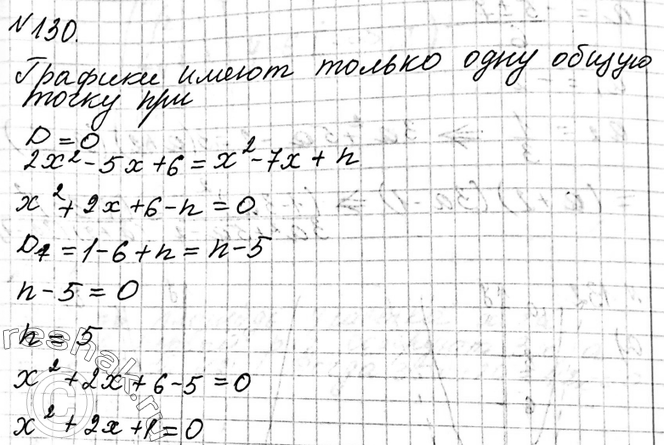 №130.
Графики имеют только одну общую
точку при
D=0
2x²-5x+6=x²-7x+n
x²+2x+6-n=0.
D₁=1-6+n=n-5
n-5=0
n=5
x²+2x+6-5=0
x²+2x+1=0
reshak.ru